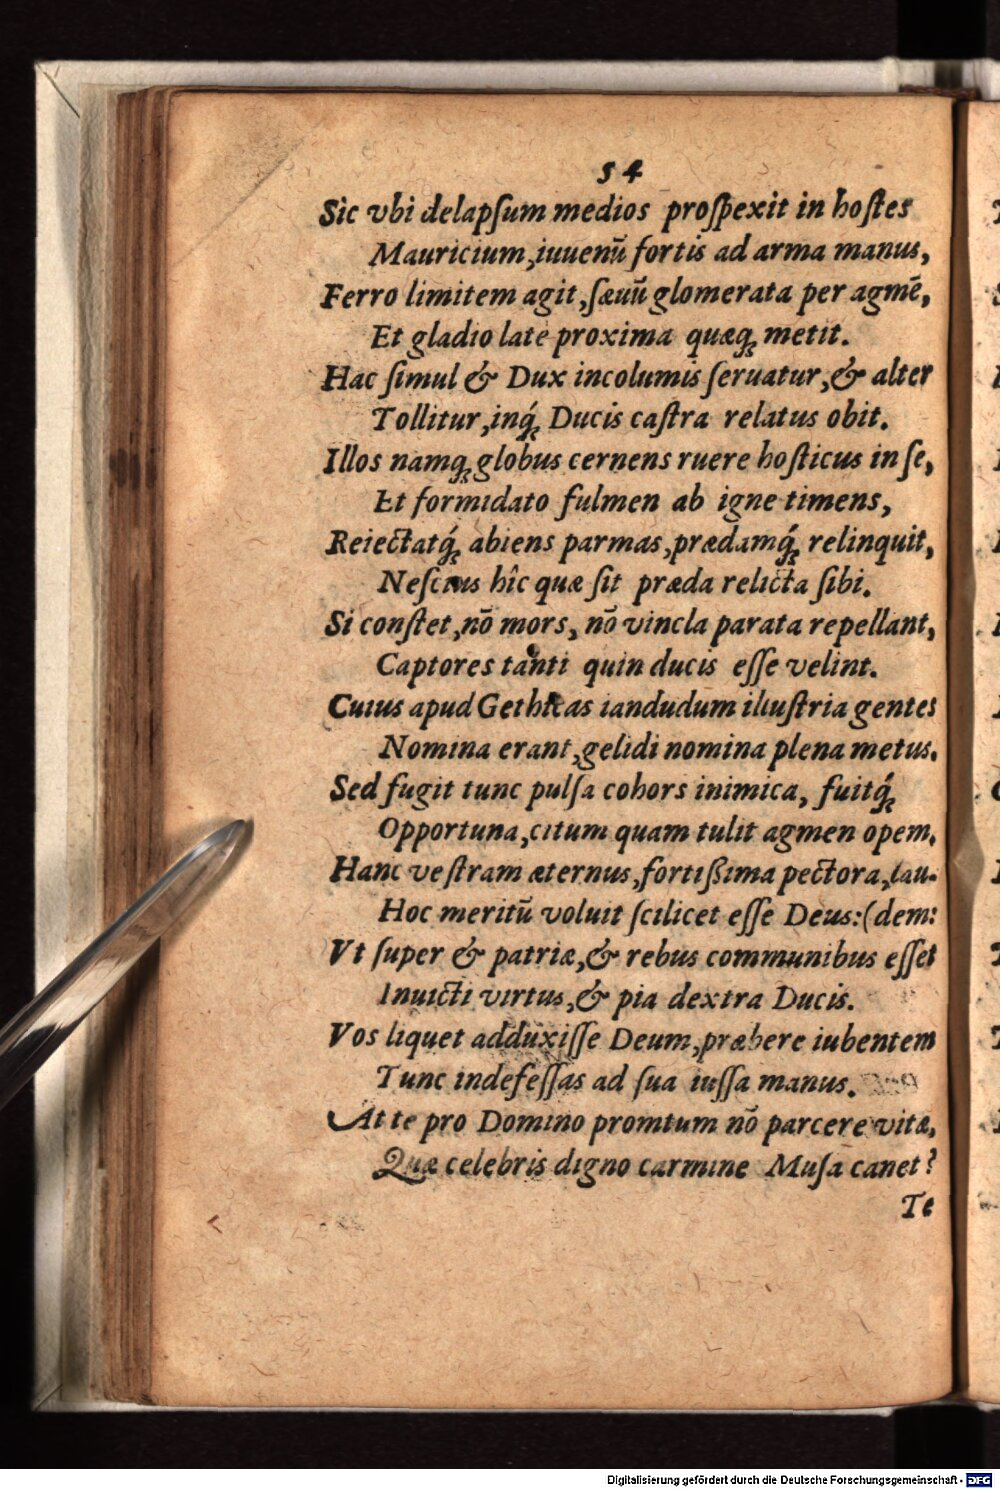 54
Sic vbi delapſum medios proſpexit in hoſtes
Mauricium,iuuenū fortis ad arma manus,
Ferro limitem agit,ſæuū glomerata per agmē,
Et gladio late proxima quæq; metit.
Hac ſimul & Dux incolumis ſeruatur,& alter
Tollitur,inq́; Ducis caſtra relatus obit.
Illos namq; globus cernens ruere hoſticus in ſe,
Et formidato fulmen ab igne timens,
Reiectatq́; abiens parmas,prædamq́; relinquit,
Neſcius hîc quæ ſit præda relicta ſibi.
Si conſtet,nō mors, nō vincla parata repellant,
Captores tanti quin ducis eſſe velint.
Cuius apud Gethicas iandudum illuſtria gentes
Nomina erant,gelidi nomina plena metus.
Sed fugit tunc pulſa cohors inimica, fuitq́;
Opportuna,citum quam tulit agmen opem.
Hanc veſtram æternus,fortißima pectora,lau-
Hoc meritū voluit ſcilicet eſſe Deus:(dem:
Vt ſuper & patriæ,& rebus communibus eſſet
Inuicti virtus,& pia dextra Ducis.
Vos liquet adduxiſſe Deum,præbere iubentem
Tunc indefeſſas ad ſua iuſſa manus.
At te pro Domino promtum nō parcere vitæ,
Quæ celebris digno carmine Muſa canet?
Te
Digitalisierung gefördert durch die Deutsche Forschungsgemeinschaft - DFG